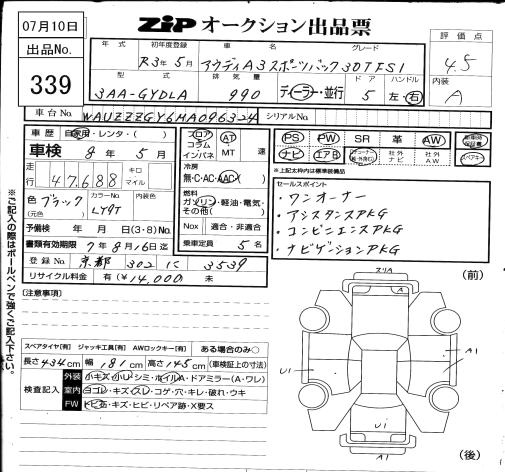 07月10日
ZiP オークション出品票
出品No.
339
年式 初年度登録 車名 グレード
R3年5月 アウディA3スポーツバック30TFSI
型式 排気量 ドア ハンドル
3AA-GYDLA 990 ディーラー・並行 5 左・右
評価点
4.5
内装
A
車台No. WAUZZZGY6MA096324 シリアルNo.
車歴 自家用・レンタ・( )
車検 8年5月
走行 47,688 キロ マイル
色 ブラック (元色) カラーNo. LY9T 内装色
予備検 年 月 日(3・8)No.
書類有効期限 7年8月16日迄
登録No. 京都 302 に 3539
リサイクル料金 有(¥14,000) 未
フロア コラム インパネ AT MT 速
冷房
無・C・AC・AAC
燃料
ガソリン・軽油・電気・その他( )
Nox 適合・非適合
乗車定員 5名
PS PW SR 革 AW 新車時保証書
ナビ エアB 社外ナビ 社外AW スペアキー
※上記太枠内は標準装備品
セールスポイント
・ワンオーナー
・アシスタンスPKG
・コンビニエンスPKG
・ナビゲーションPKG
※ご記入の際はボールペンで強くご記入下さい。
(注意事項)
スペアタイヤ[有] ジャッキ工具[有] AWロックキー[有] ある場合のみ○
長さ434cm 幅181cm 高さ145cm (車検証上の寸法)
検査記入
外装 小キズ・小U・シミ・ホイルA・ドアミラー(A・ワレ)
室内 ヨゴレ・キズ・スレ・コゲ・穴・キレ・破れ・ウキ
FW トビ石・キズ・ヒビ・リペア跡・X要ス
(前)
A
A1
U1
U1
(後)